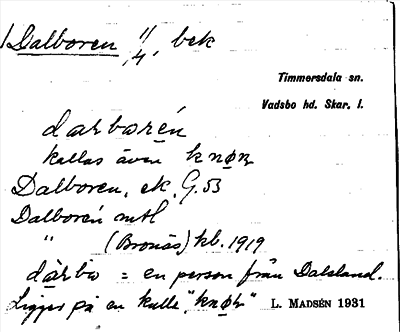 Dalboren 11/4, bek
Timmersdala sn.
Vadsbo hd. Skar. l.
darborén
kallas även knøz
Dalboren, ek. G. 53
Dalborén mtl
" (Bronäs) hl. 1919
dàrbo = en person från Dalsland.
Ligger på en kulle "knøz" L. MADSÉN 1931